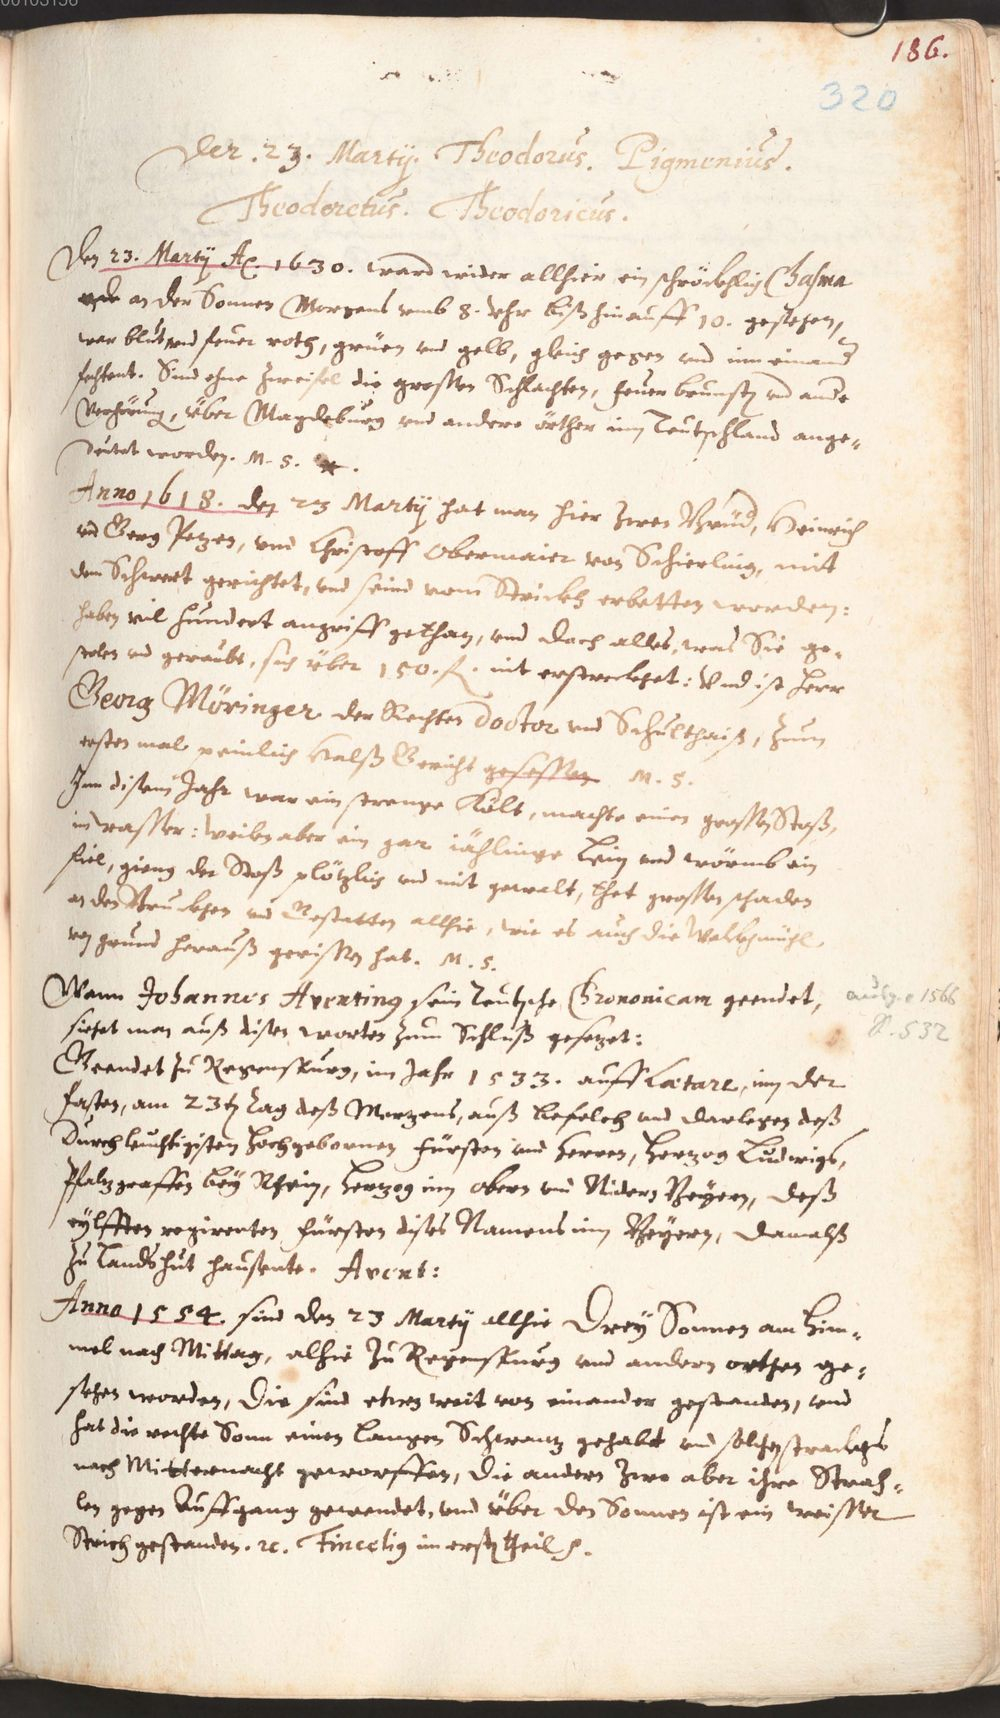 00103156
186.
320
Der .23. Martij. Theodorus. Pigmenius.
Theodoretus. Theodoricus.
Den 23. Martij Ao. 1630. ward wider allhier ein schröcklich Chasma
an der Sonnen Morgens umb 8. Uhr biß hinauff 10. gesehen,
war blut und feuer roth, grüen und gelb, gleich gegen und inn einand
fechtent. Sind ohne Zweifel die grossen Schlachten, feuer brunsten und ande
Verhörung, über Magdeburg und andere örther inn Teutschland ange-
deutet worden. M. S. *.
Anno 1618. den 23 Martij hat man hier Zwen Brüd, Heinrich
und Georg Petzen, und Christoff Obermaier von Schierling, mit
dem Schwert gerichtet, und seind vom Strickh erbetten worden:
haben vil hundert angriff gethan, und doch alles, was Sie ge-
stolen und geraubt, sich über 150. fl. nit erstreckhet: Und ist Herr
Georg Möringer der Rechten Doctor und Schultheiß, zum
ersten mal peinlich Halß Gericht gesessen M. S.
Inn disem Jahr war ein strenge Költ, machte einen grossen Stoß,
im wasser: weilen aber ein gar jählinge Lein und wörmb ein
fiel, gieng der Stoß plötzlich und mit gewalt, thet grossen schaden
an den Bruckhen und Gestatten allhie, wie es auch die Walckhmühl
von grund herauß gerissen hat. M. S.
Wann Johannes Aventinus sein Teutsche Chrononicam geendet,
sihet man auß disen worten zum Schluß gesetzet:
ausg. v 1566
S. 532
Geendet zu Regenspurg, im Jahr 1533. auff Laetare, inn der
fasten, am 23ten Tag deß Mertzens, auß befelch und darlegen deß
Durchleuchtigisten Hochgebornen Fürsten und Herren, Hertzog Ludwigs,
Pfaltzgraffen bey Rhein, Hertzog inn obern und Nidern Beyern, deß
eylfften regierenten Fürsten dises Namens inn Beyern, damalß
zu Landshut hausente. Avent:
Anno 1554. sind den 23 Martij allhie Drey Sonnen am Him-
mel nach Mittag, alhie zu Regenspurg und andern orthen ge-
sehen worden, Die sind etwas weit von einander gestanden, und
hat die rechte Sonn einen langen Schwantz gehabt und solchen strackhs
nach Mitternacht geworffen, die andern zwo aber ihre Strah-
len gegen Auffgang gewendet, und über den Sonnen ist ein weisser
Strich gestanden. etc. Fincelius im ersten theil